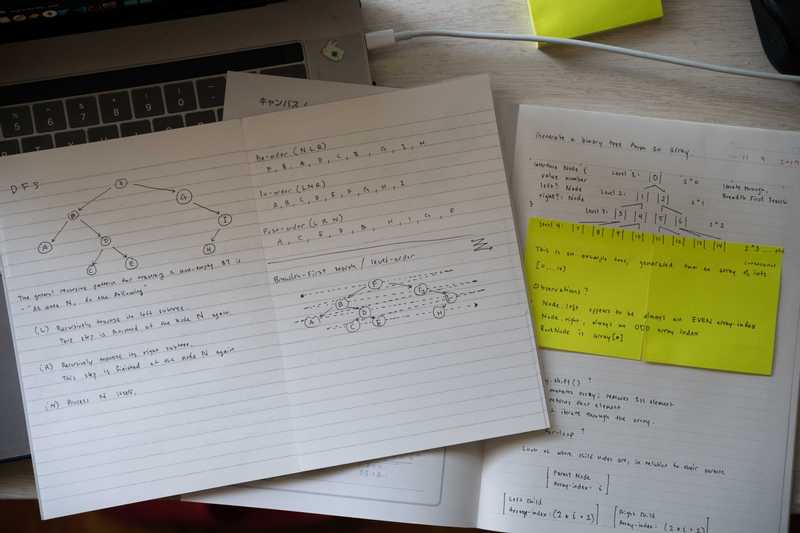 DFS
F
B
G
A
D
I
C
E
H
The general recursive pattern for traversing a non-empty BT is
- "At node N, do the following"
(L) Recursively traverse its left subtree.
This step is finished at the node N again.
(R) Recursively traverse its right subtree.
This step is finished at the node N again
(N) Process N itself.
キャンパス
Pre-order (NLR)
F, B, A, D, C, E, G, I, H
In-order (LNR)
A, B, C, D, E, F, G, H, I
Post-order (LRN)
A, C, E, D, B, H, I, G, F
Breadth-First search / level-order
F
B
G
A
D
I
C
E
H
Generate a binary tree from an array
interface Node {
value: number
left?: Node
right?: Node
}
Level 1: |0| 2^0
Level 2: |1| |2| 2^1
Level 3: |3| |4| |5| |6| 2^2
Level 4: |7| |8| |9| |10| |11| |12| |13| |14| 2^3
iterate through,
Breadth First Search
This is an example tree, generated from an array of ints
[0,..,14]
Observations?
Node.left appears to be always an EVEN array-index
Node.right, always an ODD array index
RootNode is array[0]
.shift()?
array; removes 1st element
returns that element
iterate through the array.
for-loop?
Look at where child nodes are, in relation to their parents
Parent Node
Array-index: i
Left child
Array-index: (2 * i + 1)
Right child
Array-index: (2 * i + 2)